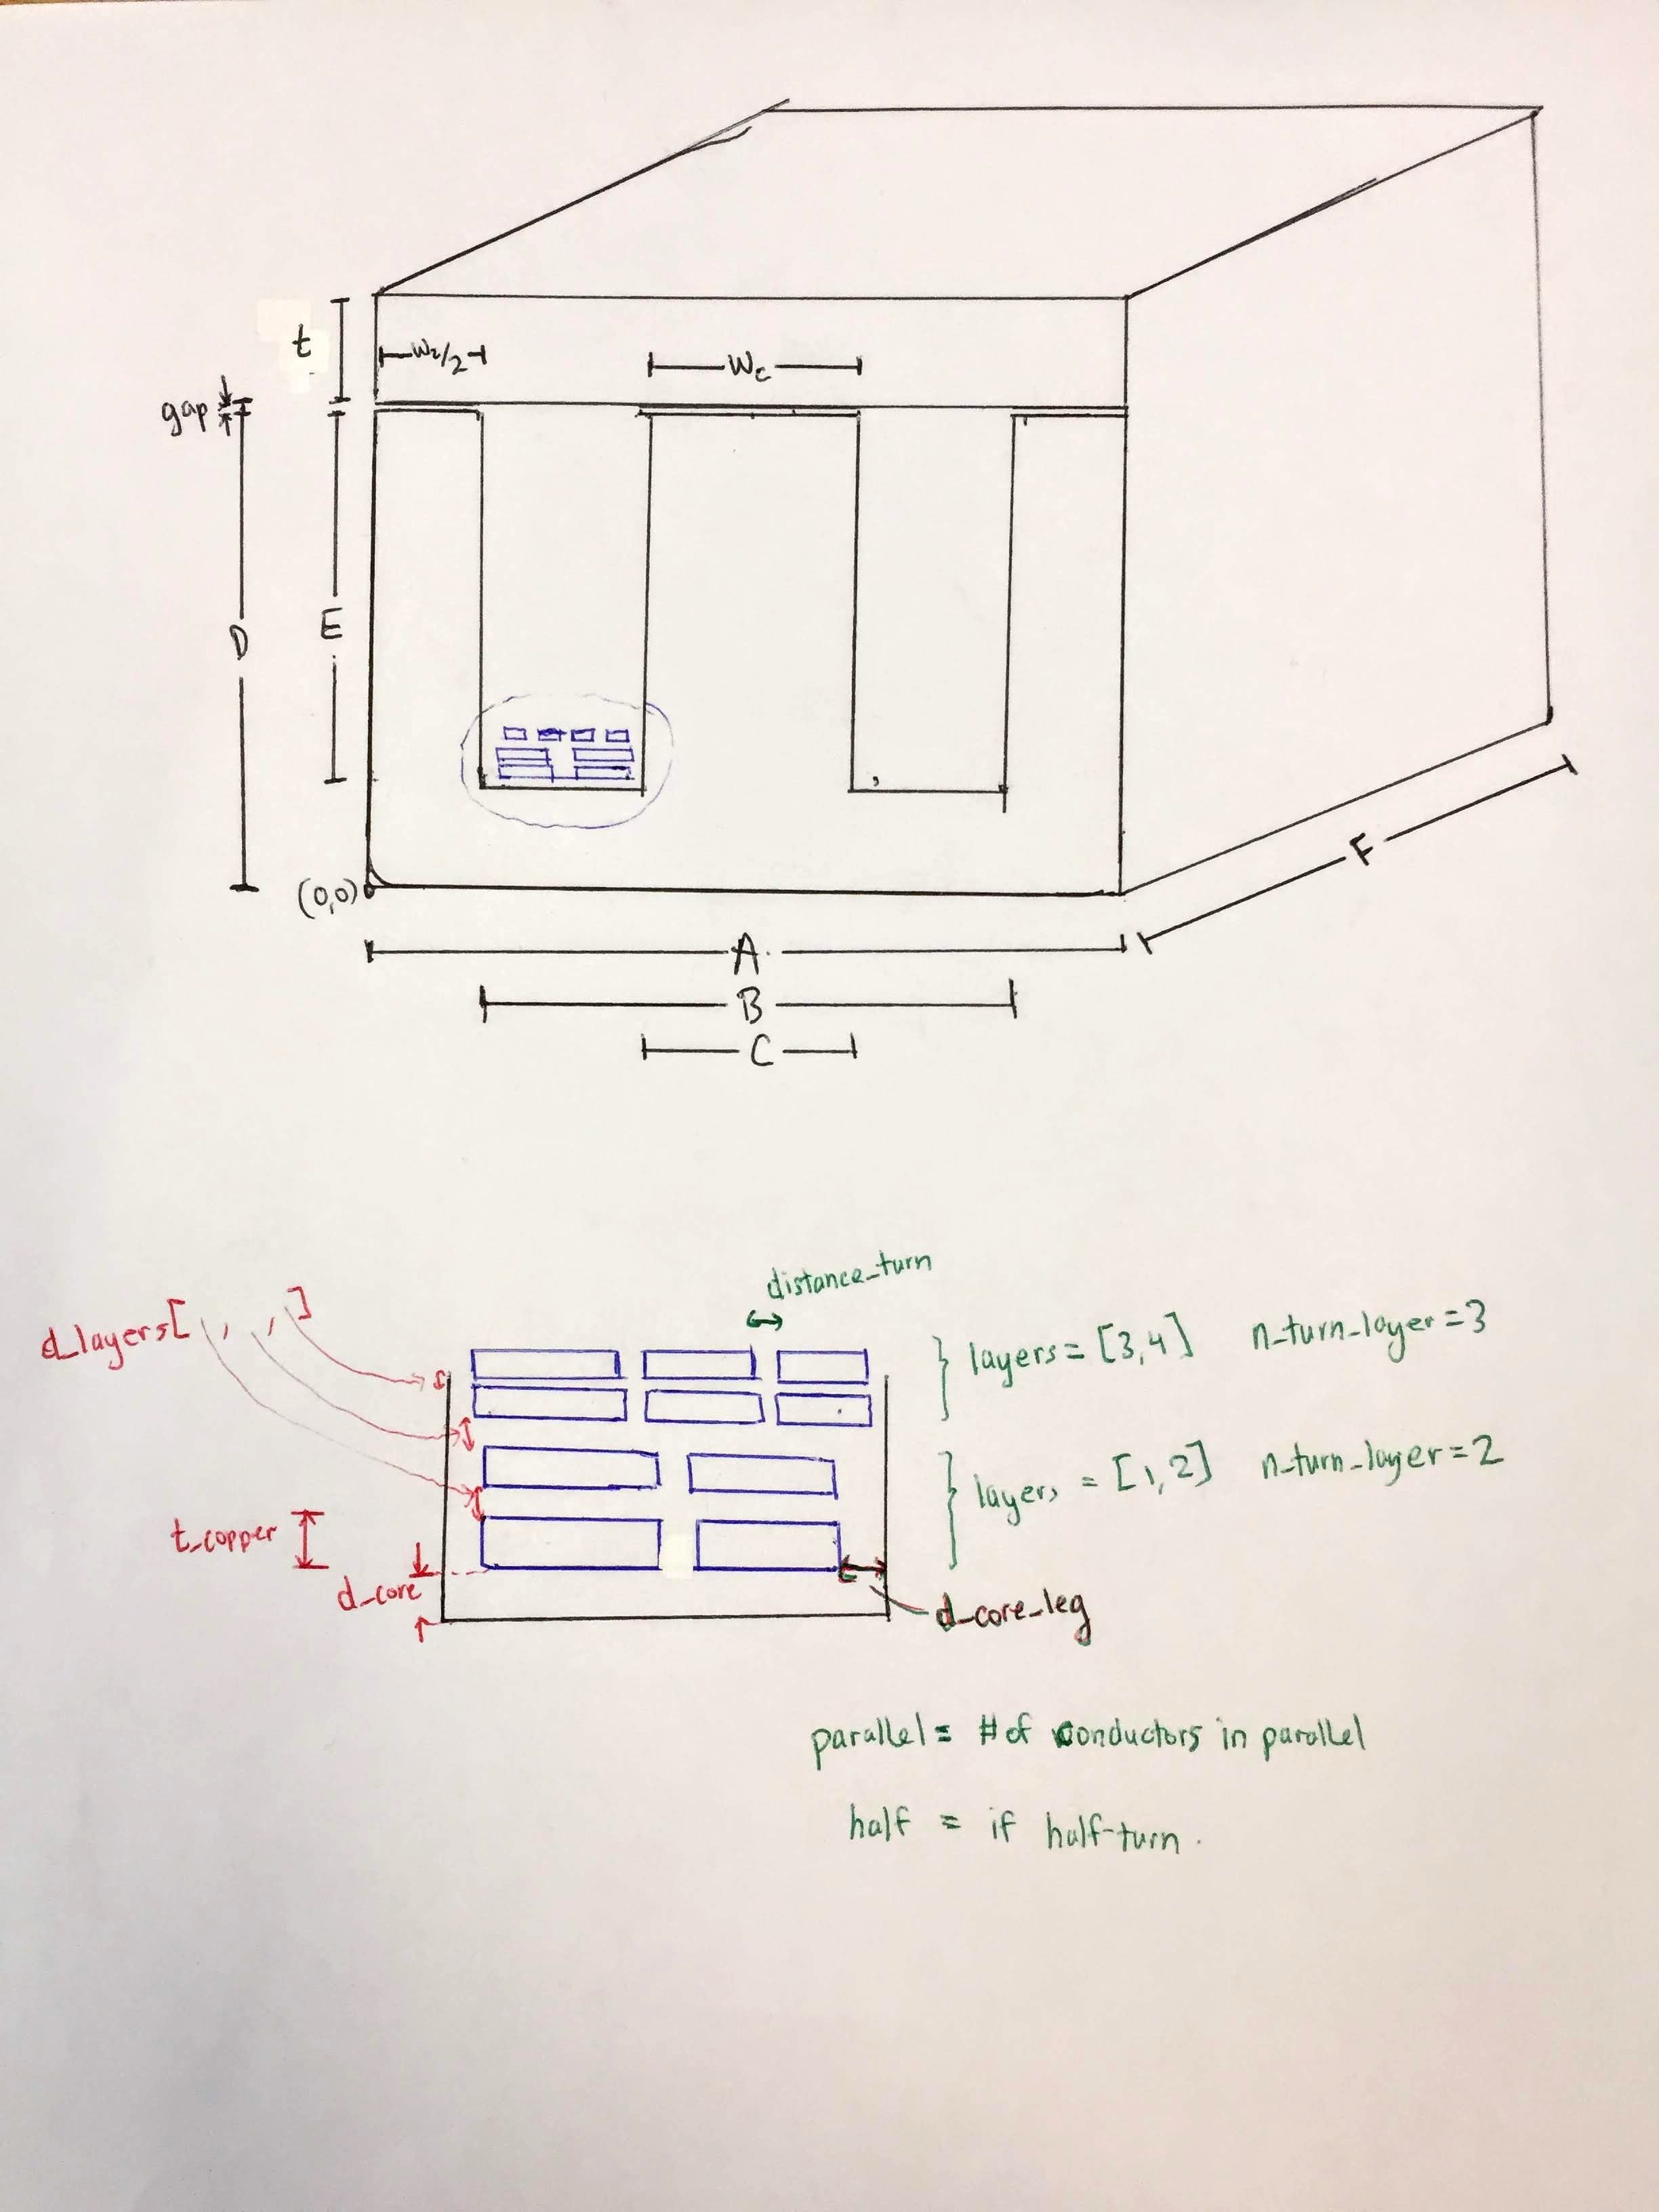 t
W2/2
Wc
gap
E
D
(0,0)
F
A
B
C
distance_turn
d_layers[ , , ]
layers = [3,4] n_turn_layer=3
layers = [1,2] n_turn_layer=2
t_copper
d_core
d_core_leg
parallel = # of conductors in parallel
half = if half-turn.